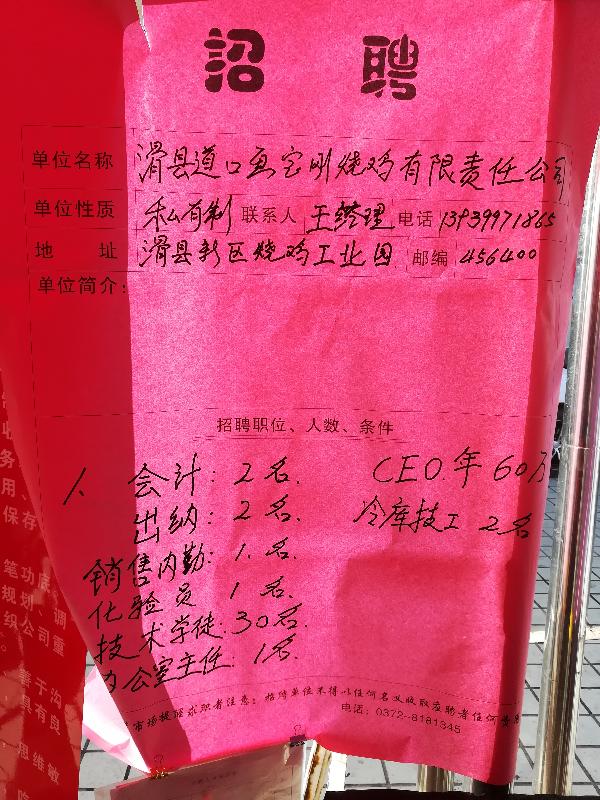 招聘
单位名称 滑县道口画宝刚烧鸡有限责任公司
单位性质 私有制 联系人 王经理 电话 13939971865
地址 滑县新区烧鸡工业园 邮编 456400
单位简介:
招聘职位、人数、条件
会计: 2名. CEO.年60万
出纳: 2名. 冷库技工 2名
销售内勤: 1.名.
化验员 1名.
技术学徒: 30名.
办公室主任: 1名.
市场提醒求职者注意: 招聘单位不得以任何名义收取应聘者任何费
电话: 0372--8181345
务
用、
保存
笔功底
调
规划
织公司重
善于沟
具有良
思维敏